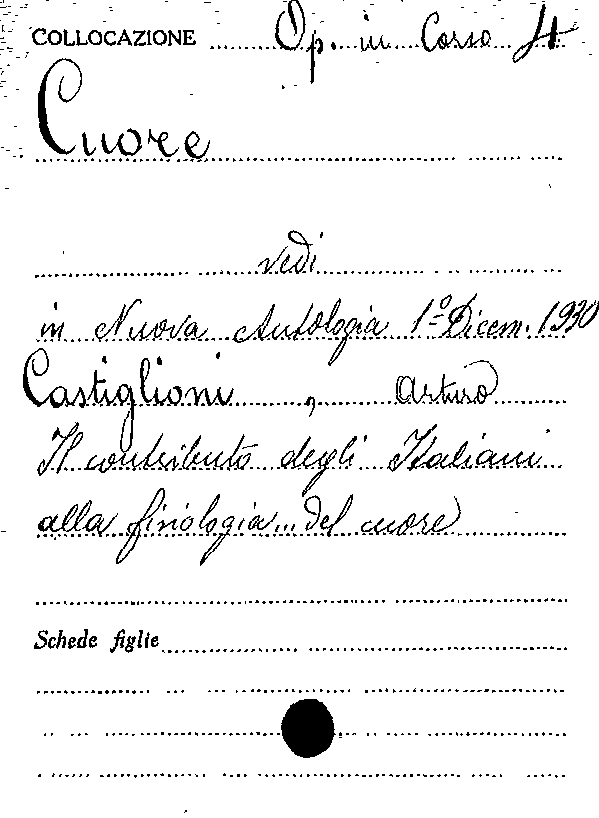 COLLOCAZIONE Op. in Corso 4
Cuore
vedi
in Nuova Antologia 1º Dicem. 1930
Castiglioni, Arturo
Il contributo degli Italiani
alla fisiologia... del cuore
Schede figlie